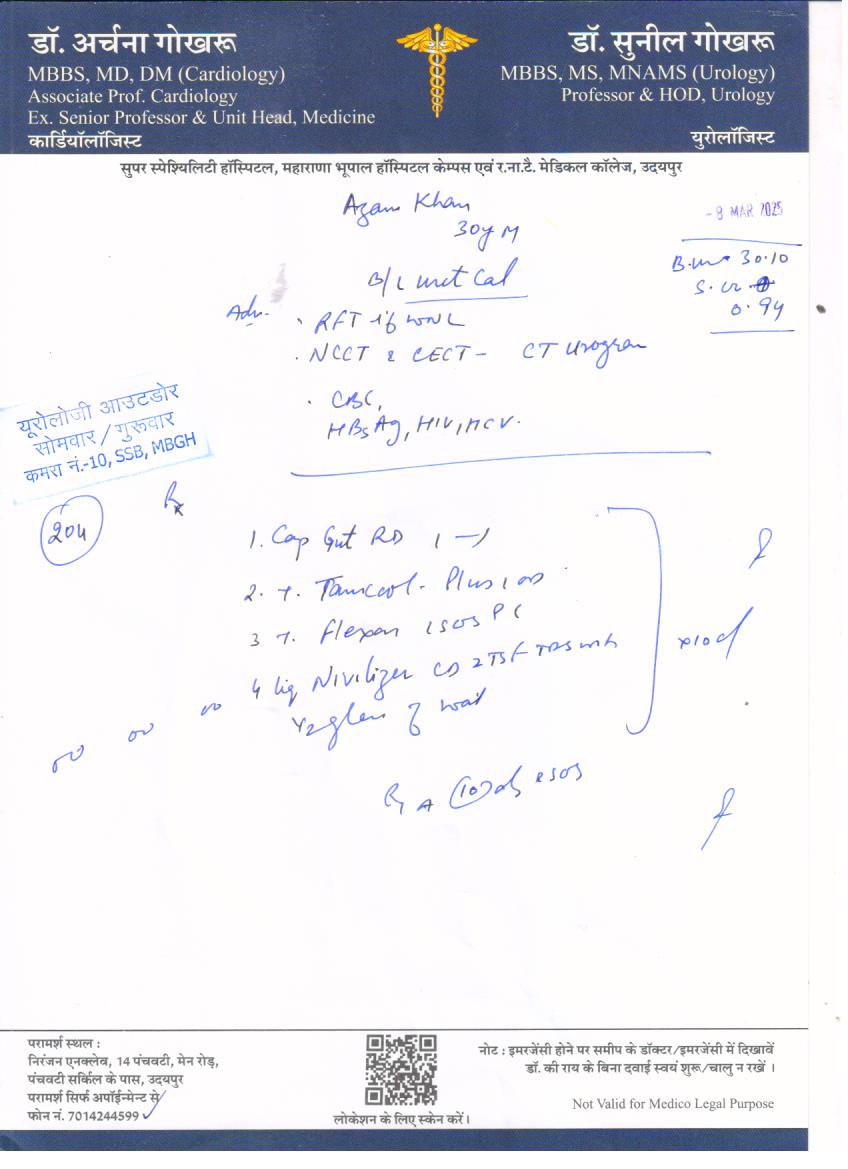 डॉ. अर्चना गोखरू
MBBS, MD, DM (Cardiology)
Associate Prof. Cardiology
Ex. Senior Professor & Unit Head, Medicine
कार्डियॉलॉजिस्ट
डॉ. सुनील गोखरू
MBBS, MS, MNAMS (Urology)
Professor & HOD, Urology
यूरोलॉजिस्ट
सुपर स्पेश्यिलिटी हॉस्पिटल, महाराणा भूपाल हॉस्पिटल केम्पस एवं र.ना.टै. मेडिकल कॉलेज, उदयपुर
Azam Khan
30y M
- 8 MAR 2025
30.10
0.94
B/L uret Cal
Adv.
. RFT if WNL
. NCCT & CECT - CT Urogram
. CBC,
HBsAg, HIV, HCV.
यूरोलोजी आउटडोर
सोमवार / गुरूवार
कमरा नं.-10, SSB, MBGH
204
Rx
1. Cap Gut RD 1 — 1
2. T. Plus 1 OD
3 T. Flexon 1 SOS
4 Liq 2 TSF TDS with
1/2 glass of
x10 d
SOS
परामर्श स्थल :
निरंजन एनक्लेव, 14 पंचवटी, मेन रोड़,
पंचवटी सर्किल के पास, उदयपुर
परामर्श सिर्फ अपॉईन्मेन्ट से
फोन नं. 7014244599
लोकेशन के लिए स्केन करें।
नोट : इमरजेंसी होने पर समीप के डॉक्टर/इमरजेंसी में दिखावें
डॉ. की राय के बिना दवाई स्वयं शुरू/चालु न रखें ।
Not Valid for Medico Legal Purpose